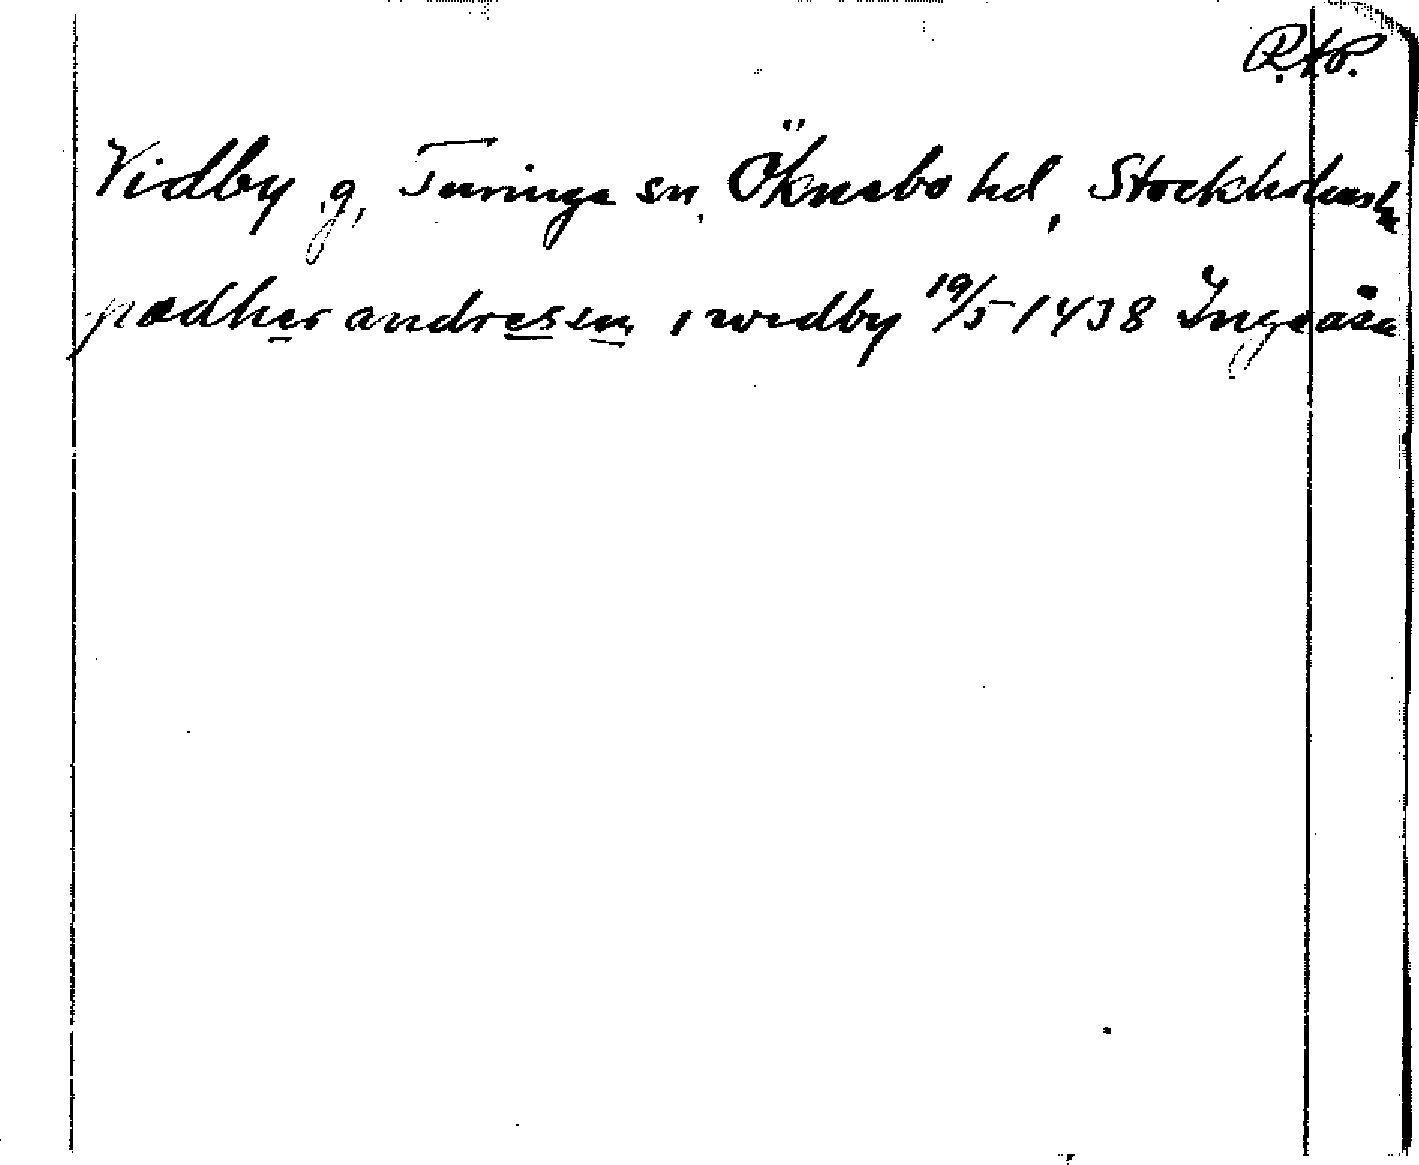 R.A.P.
Vidby g, Turinge sn, Öknebo hd, Stockholms l.
pædher andressen, i wedby 19/5 1438 Ingeåsa